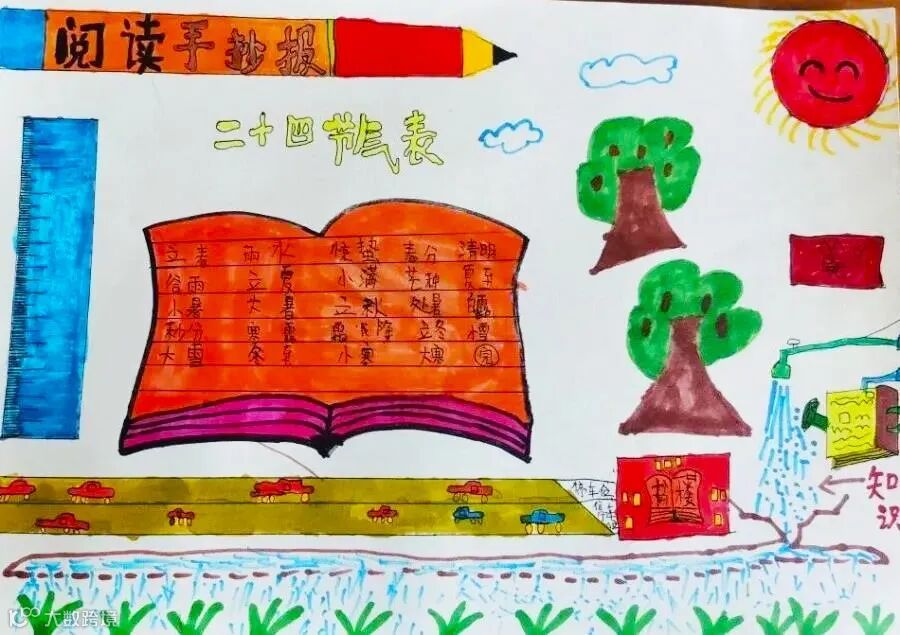 阅读手抄报
二十四节气表
立春 雨水 惊蛰 春分 清明
谷雨 立夏 小满 芒种 夏至
小暑 大暑 立秋 处暑
秋分 寒露 霜降 立冬
大雪 冬 小寒 大寒 完
停车位
停车
书楼
知识
大数跨境